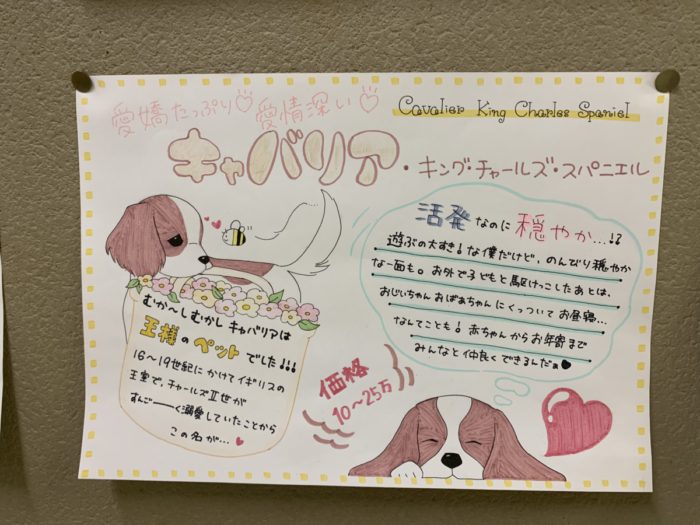 愛嬌たっぷり♡ 愛情深い♡
Cavalier King Charles Spaniel
キャバリア・キング・チャールズ・スパニエル
活発なのに穏やか…!?
遊ぶの大すき!な僕だけど、のんびり穏やか
な一面も。お外で子どもと駆けっこしたあとは、
おじいちゃんおばあちゃんにくっついてお昼寝…
なんてことも!赤ちゃんからお年寄まで
みんなと仲良くできるんだぁ♥
むか〜しむかしキャバリアは
王様のペットでした!!!
16〜19世紀にかけてイギリスの
王室で、チャールズⅡ世が
すんごーーく溺愛していたことから
この名が…♥
価格
10〜25万